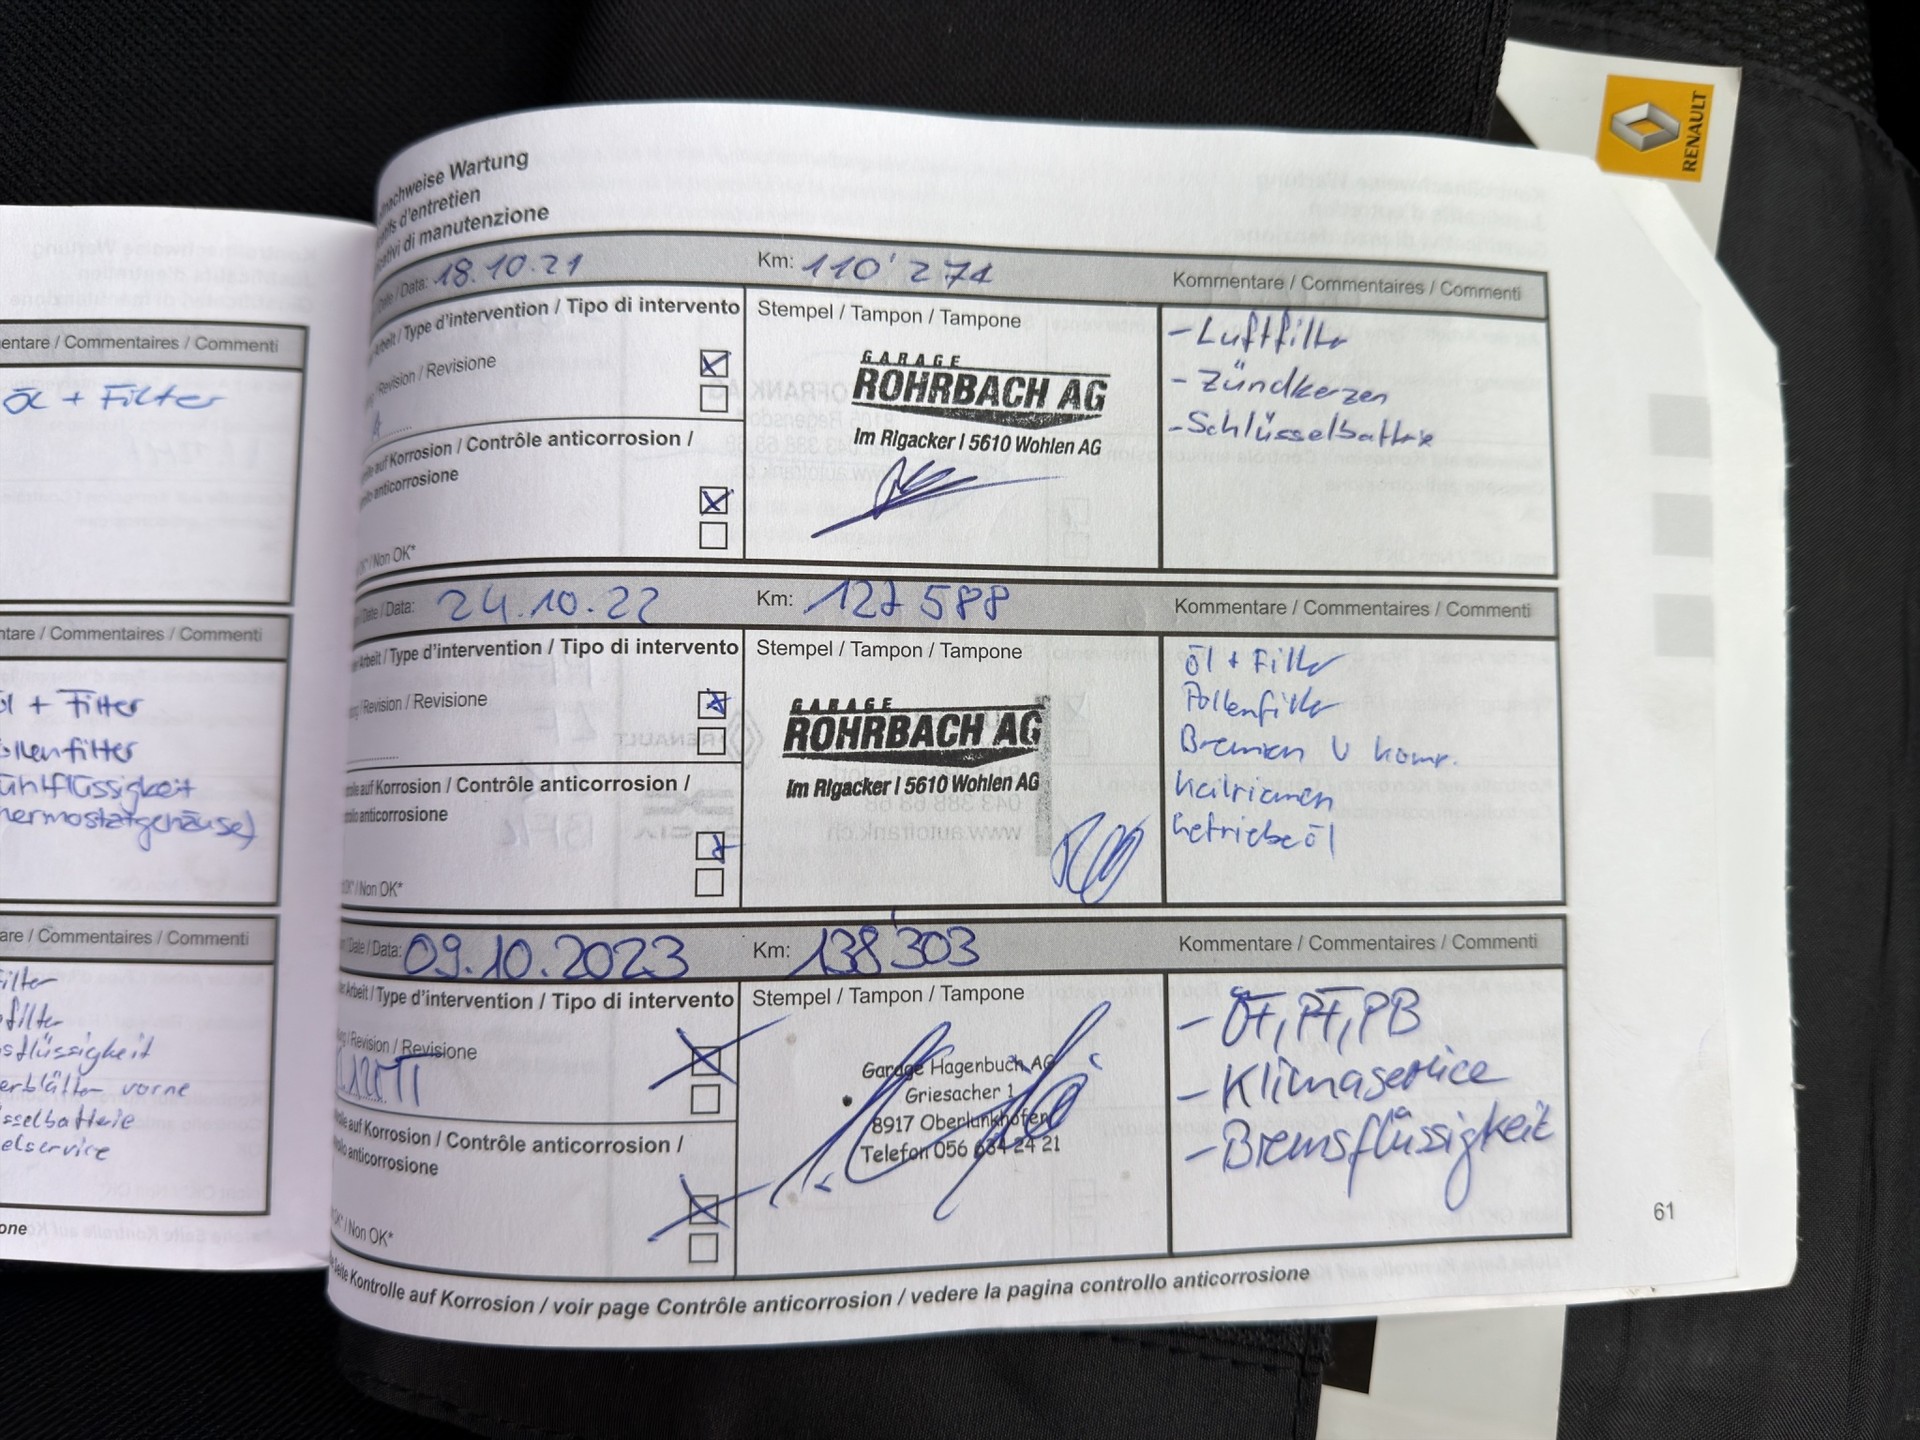 entare / Commentaires / Commenti
Öl + Filter
ntare / Commentaires / Commenti
Öl + Filter
ollenfilter
ühlflüssigkeit
hermostatgehäuse)
are / Commentaires / Commenti
filter
filter
sflüssigkeit
erblätter vorne
sselbatterie
elservice
one
nachweise Wartung
ifs d'entretien
ativi di manutenzione
Date / Data: 18.10.21 Km: 110'271 Kommentare / Commentaires / Commenti
Arbeit / Type d'intervention / Tipo di intervento
Revision / Revisione
A
auf Korrosion / Contrôle anticorrosion /
anticorrosione
OK* / Non OK*
Stempel / Tampon / Tampone
GARAGE
ROHRBACH AG
Im Rigacker | 5610 Wohlen AG
- Luftfilter
- Zündkerzen
- Schlüsselbatterie
Date / Data: 24.10.22 Km: 127 588 Kommentare / Commentaires / Commenti
Arbeit / Type d'intervention / Tipo di intervento
Revision / Revisione
auf Korrosion / Contrôle anticorrosion /
anticorrosione
OK* / Non OK*
Stempel / Tampon / Tampone
GARAGE
ROHRBACH AG
Im Rigacker | 5610 Wohlen AG
Öl + Filter
Pollenfilter
Bremsen v komp.
Keilriemen
Getriebeöl
Date / Data: 09.10.2023 Km: 138'303 Kommentare / Commentaires / Commenti
Arbeit / Type d'intervention / Tipo di intervento
Revision / Revisione
auf Korrosion / Contrôle anticorrosion /
anticorrosione
OK* / Non OK*
Stempel / Tampon / Tampone
Garage Hagenbuch AG
Griesacher 1
8917 Oberlunkhofen
Telefon 056 634 24 21
- ÖF, PF, PB
- Klimaservice
- Bremsflüssigkeit
61
Seite Kontrolle auf Korrosion / voir page Contrôle anticorrosion / vedere la pagina controllo anticorrosione
RENAULT